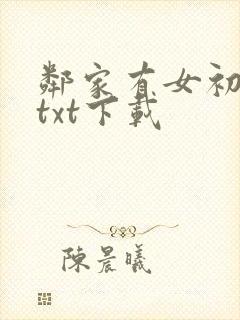 鄰家有女初
txt下載
陳晨曦